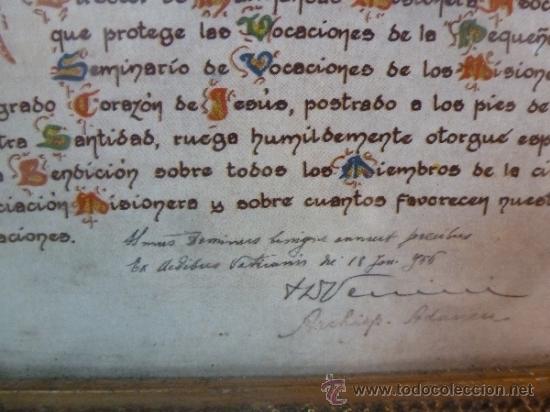 que protege las Vocaciones de la Pequeñ
Seminario de Vocaciones de los Mision
grado Corazón de Jesús, postrado a los pies de
tra Santidad, ruega humildemente otorgue esp
Bendición sobre todos los Miembros de la ci
ciación Misionera y sobre cuantos favorecen nuest
aciones.
Dominus benigne annuit precibus
Ex Aedibus Vaticanis die 18 Jan.
Archiep.
© www.todocoleccion.net